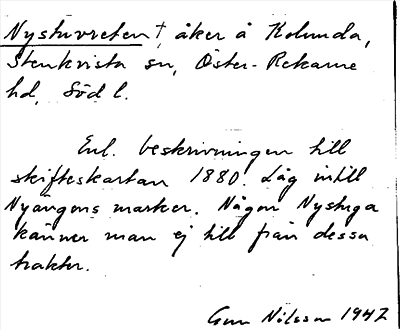 Nystuvreten †, åker å Kolunda,
Stenkvista sn, Öster-Rekarne
hd, Söd l.
Enl. beskrivningen till
skifteskartan 1880. Låg intill
Nyängens marker. Någon Nystuga
känner man ej till från dessa
trakter.
Gun Nilsson 1947